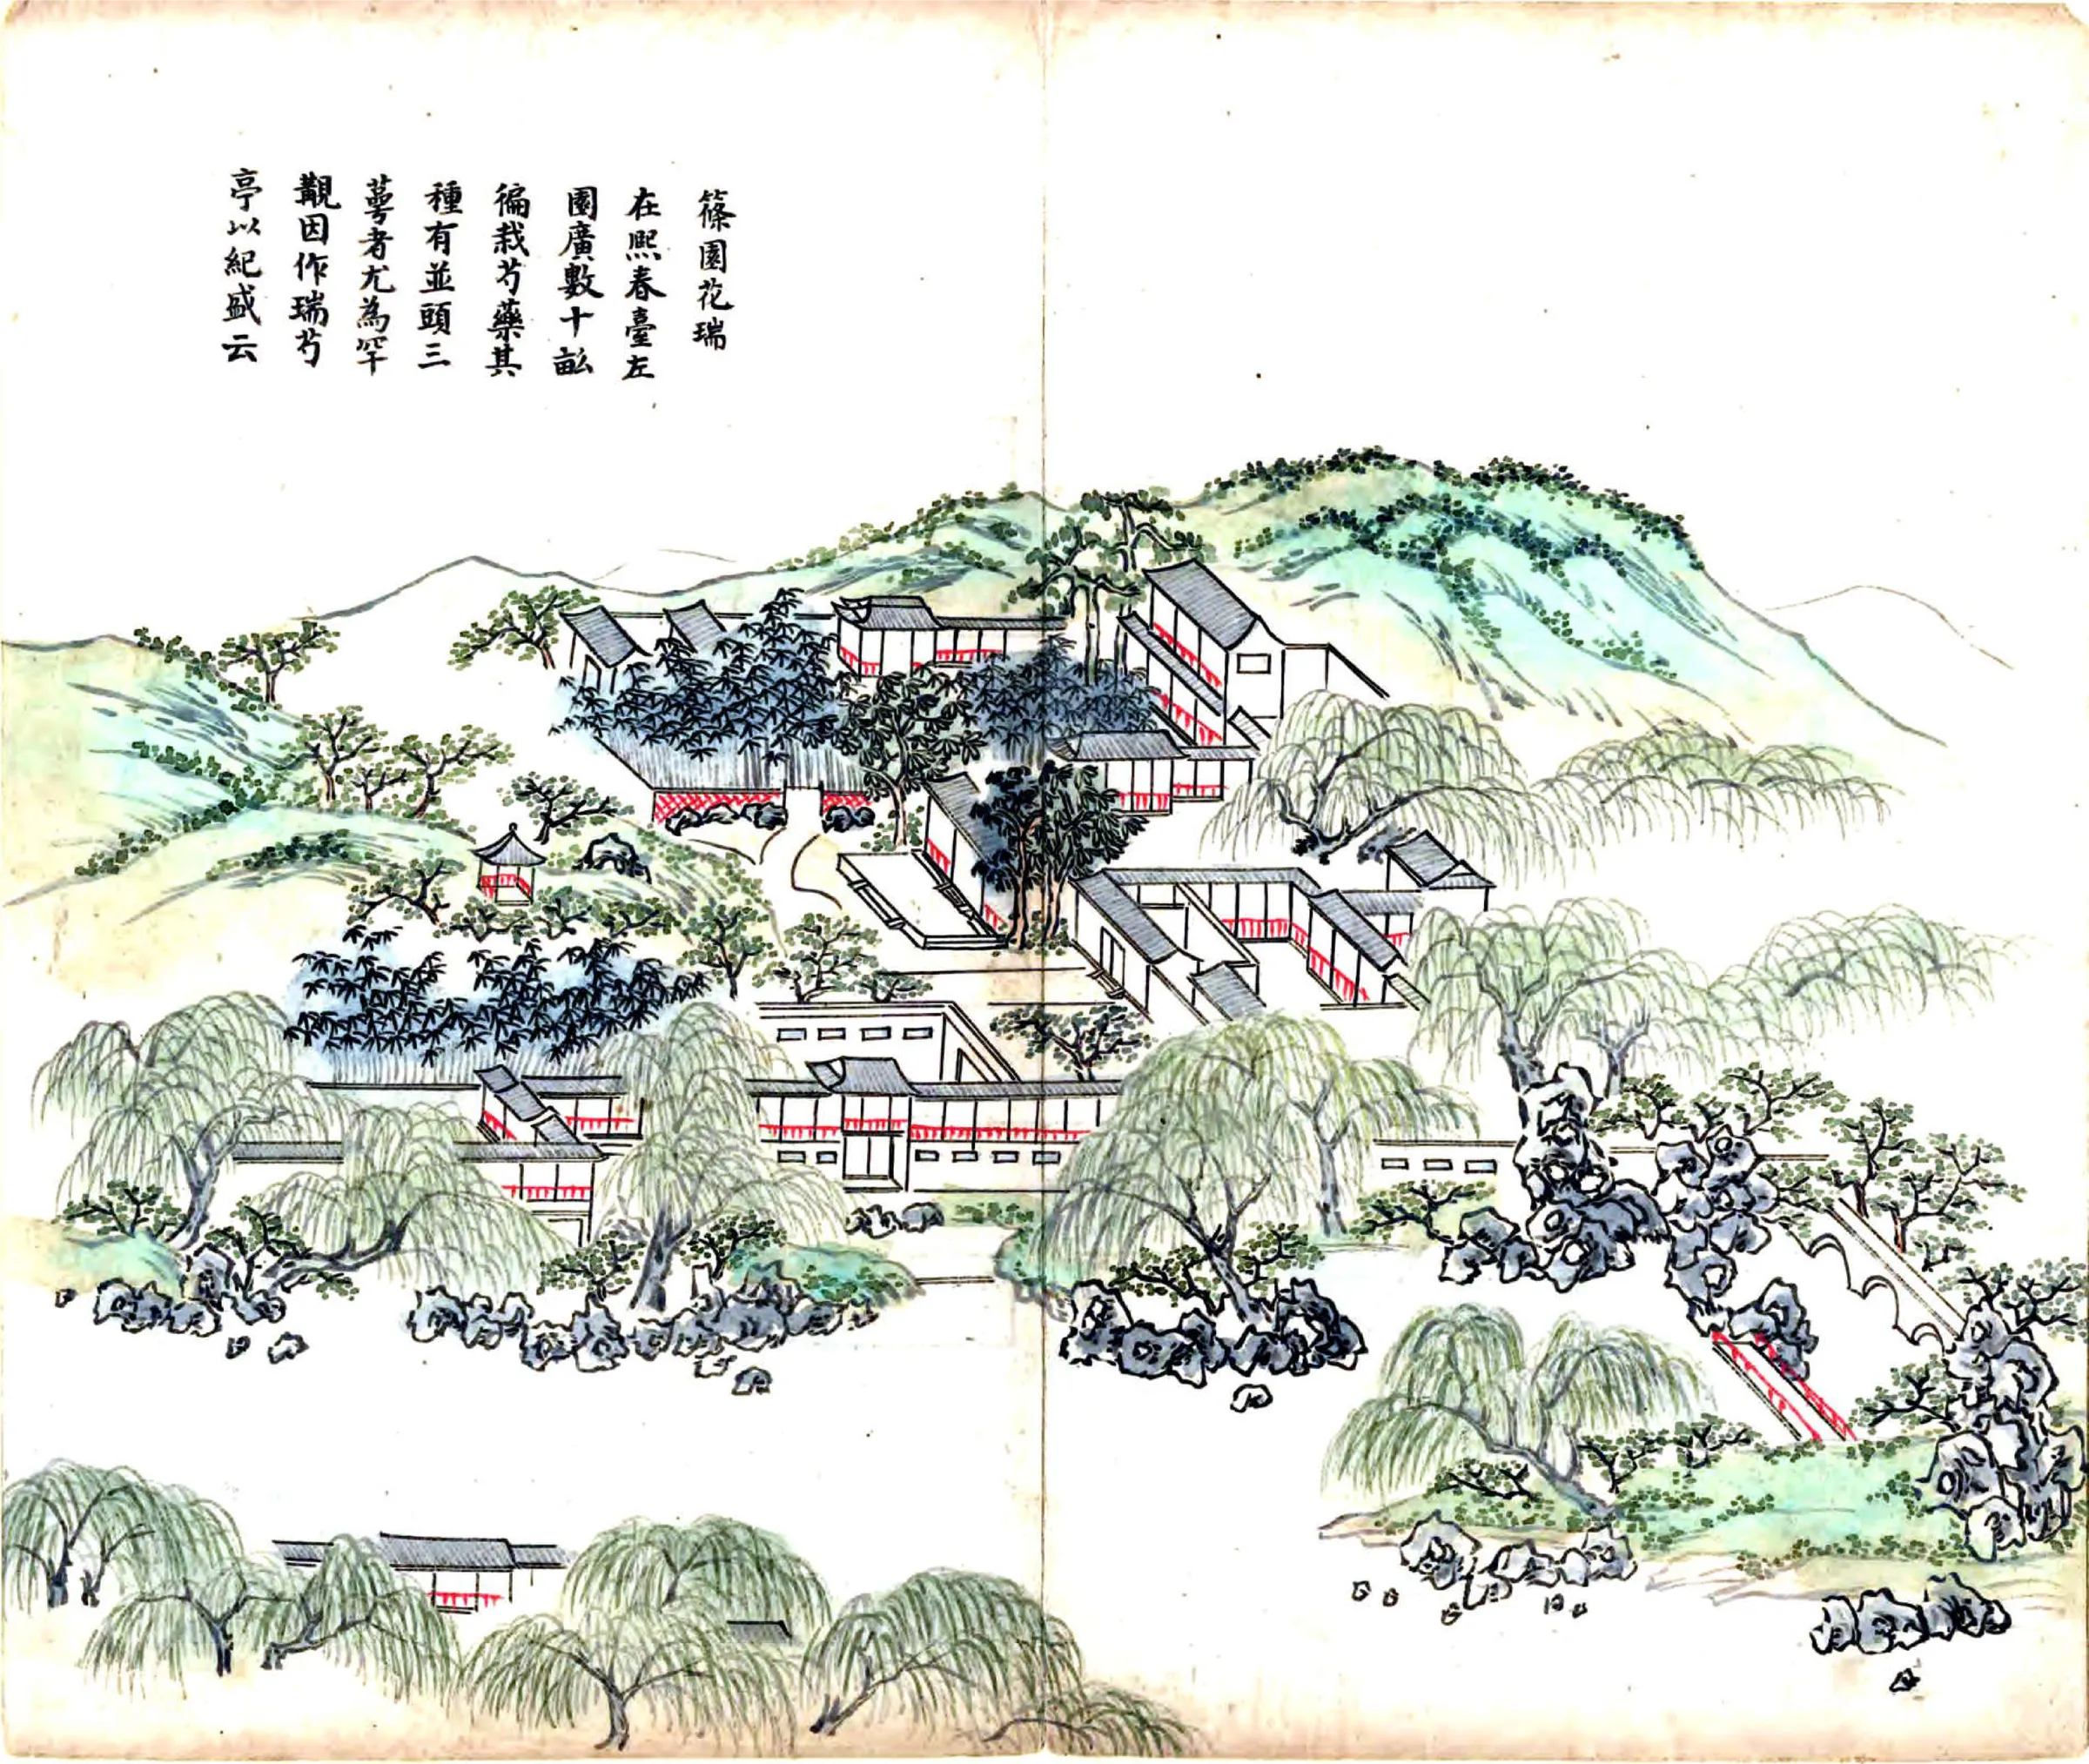 篠園花瑞
在熙春臺左
園廣數十畝
徧栽芍藥其
種有並頭三
萼者尤為罕
覯因作瑞芍
亭以紀盛云